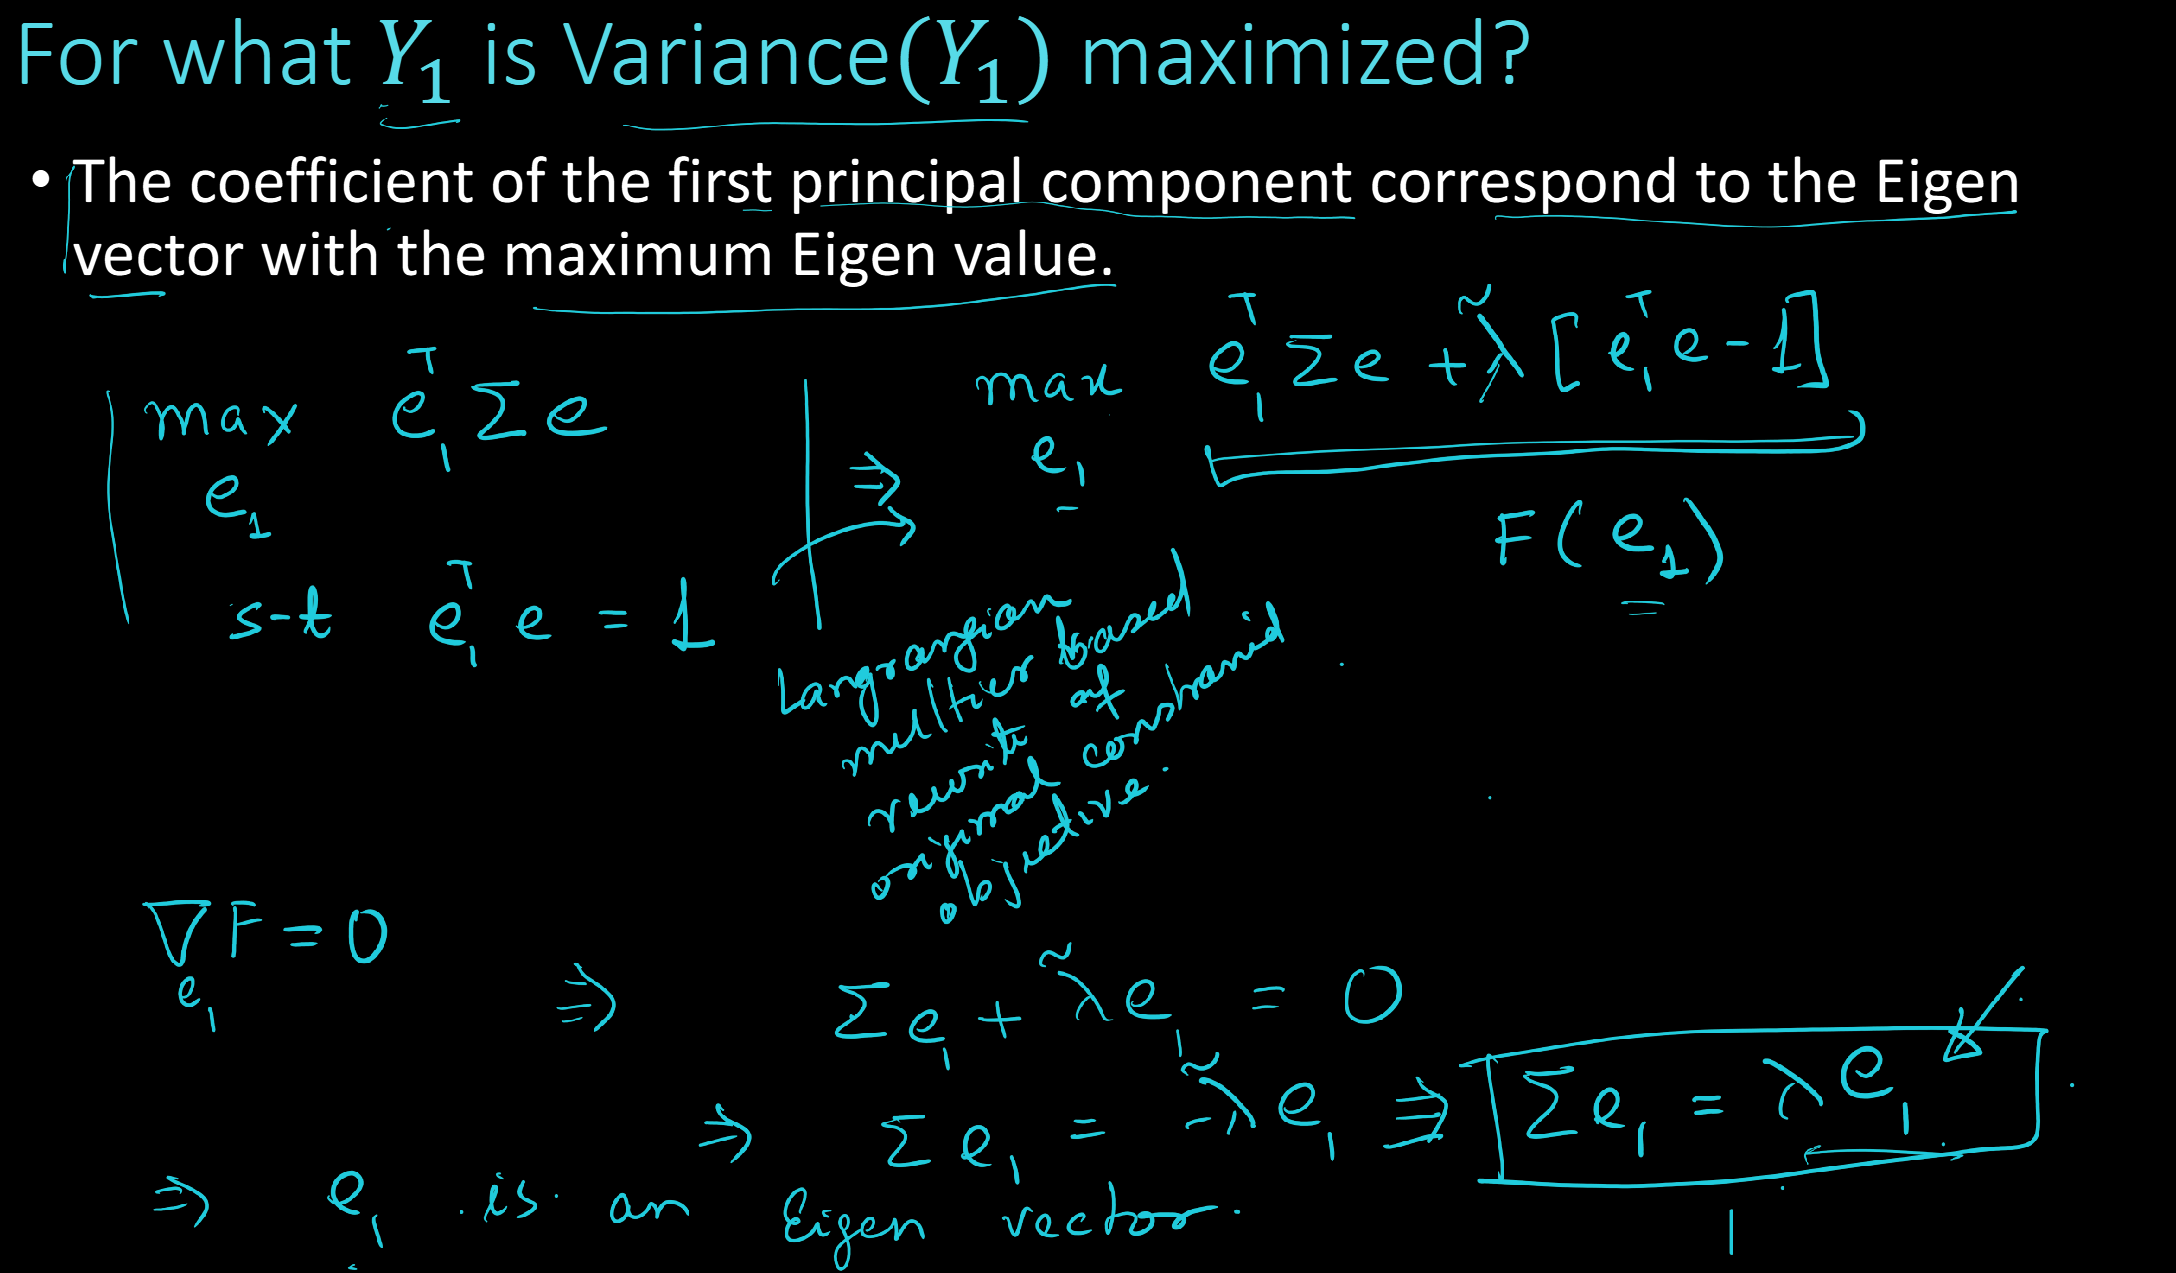 For what Y₁ is Variance(Y₁) maximized?
• The coefficient of the first principal component correspond to the Eigen
vector with the maximum Eigen value.
max e₁ᵀ Σ e
e₁
s-t e₁ᵀ e = 1
⇒
max e₁ᵀ Σ e + λ̃ [e₁ᵀ e - 1]
e₁
F(e₁)
Langrangian
multier based
rewrite of
original constraind
objective.
∇F = 0
e₁
⇒ Σe₁ + λ̃e₁ = 0
⇒ Σe₁ = -λ̃e₁ ⇒ Σe₁ = λe₁
⇒ e₁ is an Eigen vector.